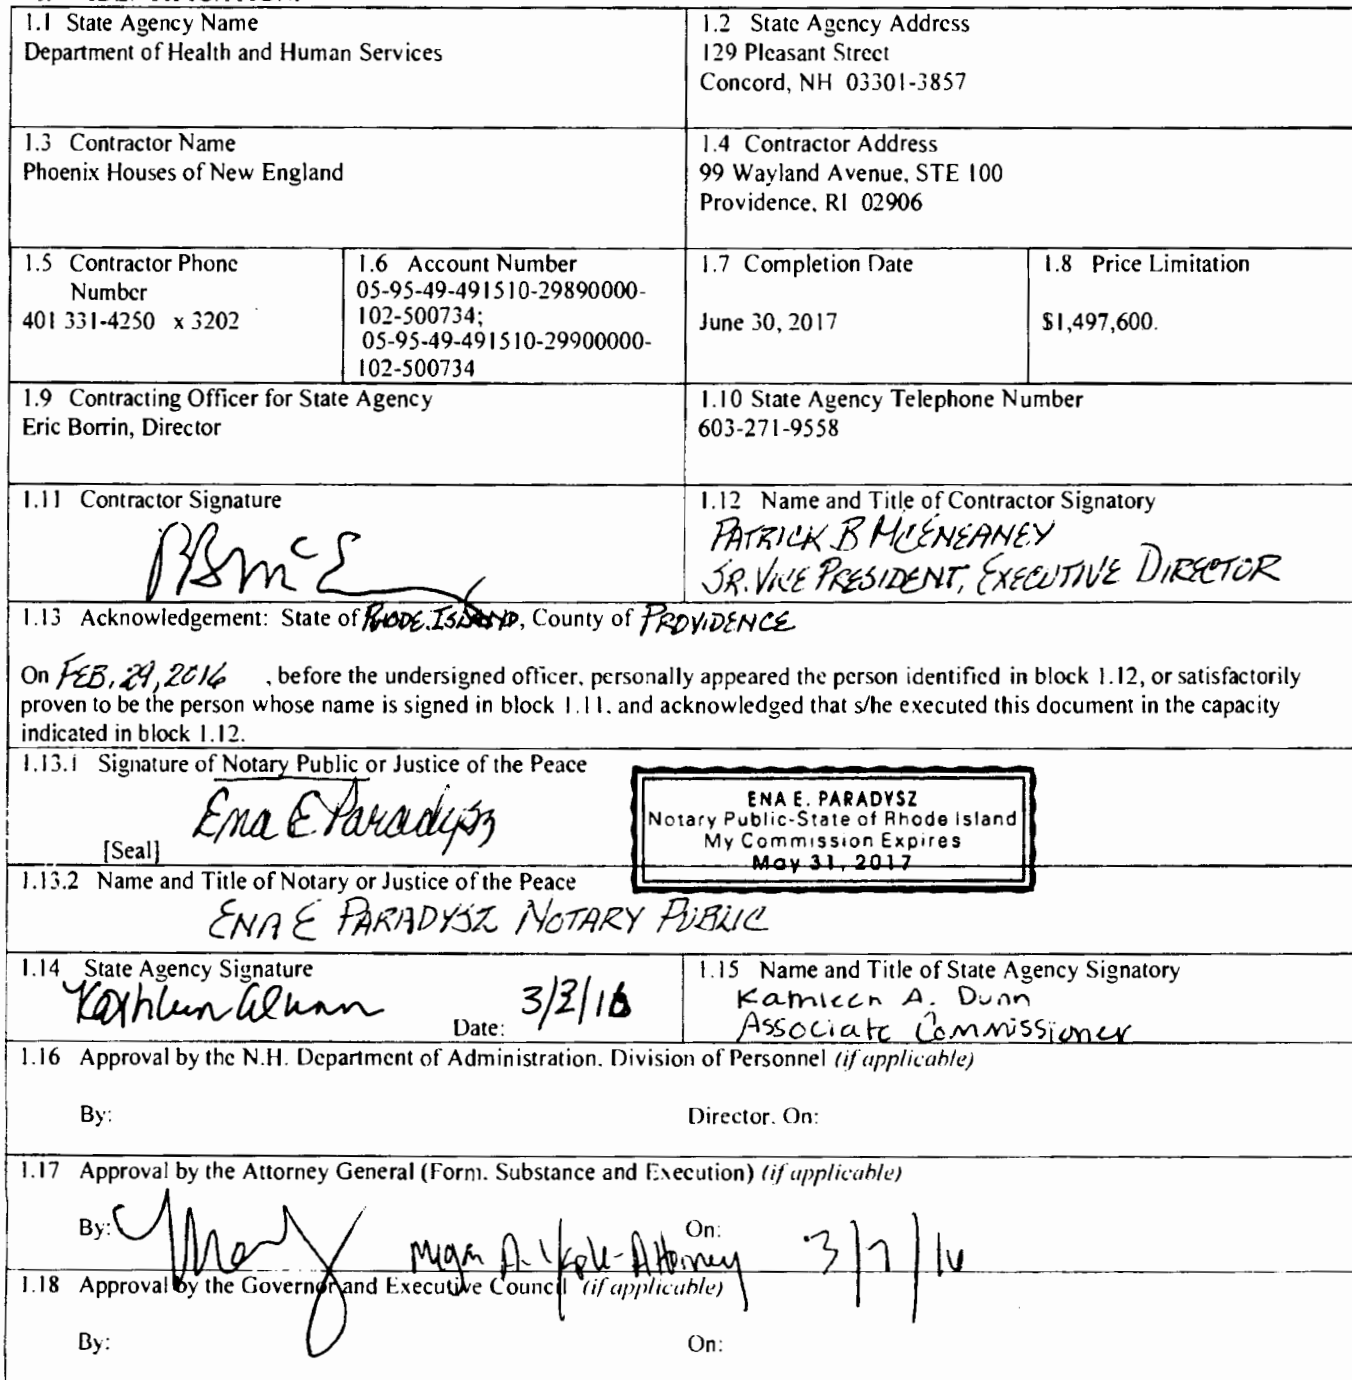 1.1 State Agency Name
Department of Health and Human Services
1.2 State Agency Address
129 Pleasant Street
Concord, NH 03301-3857
1.3 Contractor Name
Phoenix Houses of New England
1.4 Contractor Address
99 Wayland Avenue, STE 100
Providence, RI 02906
1.5 Contractor Phone
Number
401 331-4250 x 3202
1.6 Account Number
05-95-49-491510-29890000-
102-500734;
05-95-49-491510-29900000-
102-500734
1.7 Completion Date
June 30, 2017
1.8 Price Limitation
$1,497,600.
1.9 Contracting Officer for State Agency
Eric Borrin, Director
1.10 State Agency Telephone Number
603-271-9558
1.11 Contractor Signature
1.12 Name and Title of Contractor Signatory
PATRICK B MCENEANEY
SR. VICE PRESIDENT, EXECUTIVE DIRECTOR
1.13 Acknowledgement: State of RHODE ISLAND, County of PROVIDENCE
On FEB. 29, 2016 , before the undersigned officer, personally appeared the person identified in block 1.12, or satisfactorily
proven to be the person whose name is signed in block 1.11, and acknowledged that s/he executed this document in the capacity
indicated in block 1.12.
1.13.1 Signature of Notary Public or Justice of the Peace
Ena E Paradysz
[Seal]
ENA E. PARADYSZ
Notary Public-State of Rhode Island
My Commission Expires
May 31, 2017
1.13.2 Name and Title of Notary or Justice of the Peace
ENA E PARADYSZ NOTARY PUBLIC
1.14 State Agency Signature
Kathleen A Dunn
Date: 3/2/16
1.15 Name and Title of State Agency Signatory
Kathleen A. Dunn
Associate Commissioner
1.16 Approval by the N.H. Department of Administration, Division of Personnel (if applicable)
By:
Director, On:
1.17 Approval by the Attorney General (Form, Substance and Execution) (if applicable)
By: Megan A. - Attorney On: 3/7/16
1.18 Approval by the Governor and Executive Council (if applicable)
By:
On: